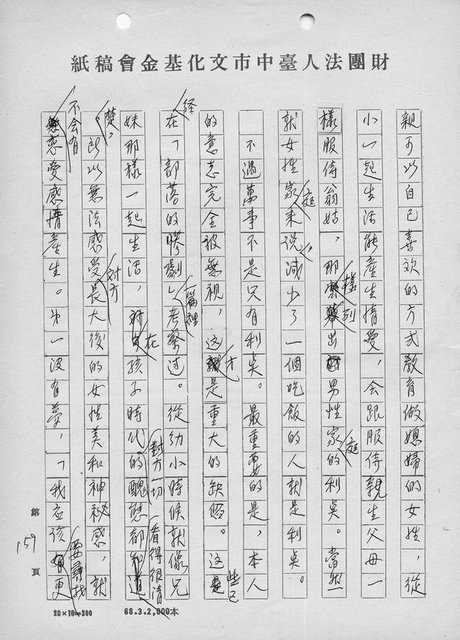 財團法人臺中市文化基金會稿紙
親可以自己喜歡的方式教育做媳婦的女性，從
小一起生活能產生情愛，會跟服侍親生父母一
樣服侍翁姑，那樣列出男性家庭的利奌。當然
就女性家庭來說，減少了一個吃飯的人就是利奌。
不過萬事不是只有利奌。最重要的是，本人
的意志完全被無視，這才是重大的缺陷。這些已
經在「部落的慘劇」一篇裡考察過。從幼小時候就像兄
妹那樣一起生活，在孩子時代對方一切的醜態都看得很清
楚，所以無法感受對方長大後的女性美和神秘感，就
不會有戀愛感情產生。第一沒有夢，「我應該要尋找更
第 159 頁
20×10=200 68.3.2,000本